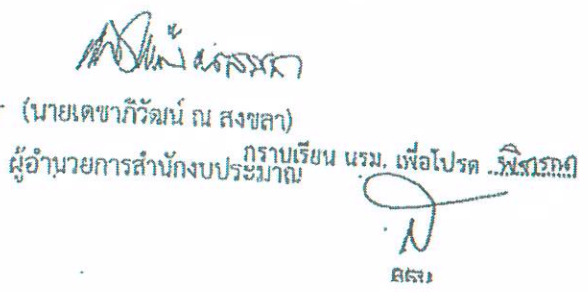 (นายเดชาภิวัฒน์ ณ สงขลา)
ผู้อำนวยการสำนักงบประมาณ
กราบเรียน นรม. เพื่อโปรด พิจารณา